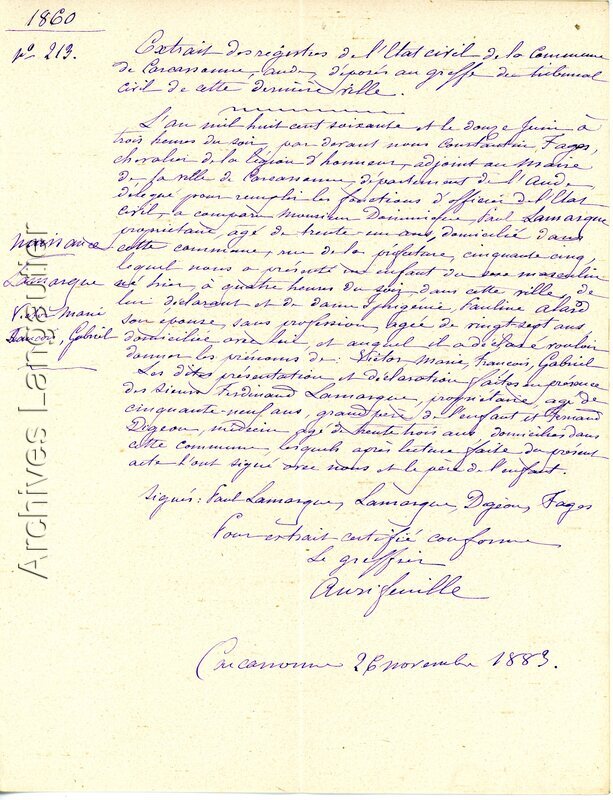 1860
nº 213.
Extrait des registres de l'Etat civil de la Commune
de Carcassonne, aude, déposés au greffe du tribunal
civil de cette dernière ville.
L'an mil huit cent soixante et le douze Juin à
trois heures du soir, par devant nous Constantin Fages,
chevalier de la légion d'honneur, adjoint au Maire
de la ville de Carcassonne, département de l'Aude,
délégué pour remplir les fonctions d'officier de l'Etat
civil, a comparu Monsieur Dominique Paul Lamarque
propriétaire, agé de trente-un ans, domicilié dans
cette commune, rue de la préfecture, cinquante cinq,
lequel nous a présenté un enfant du sexe masculin
né hier, à quatre heures du soir, dans cette ville, de
lui déclarant et de dame Iphigénie, Pauline Alard
son épouse, sans profession, agée de vingt sept ans
domiciliée avec lui, et auquel il a déclaré vouloir
donner les prénoms de: Victor Marie, François, Gabriel
Les dites présentation et déclaration faites en présence
des sieurs Ferdinand Lamarque, propriétaire, agé de
cinquante-neuf ans, grand père de l'enfant et Fernand
Digeon, médecin, agé de trente trois ans, domiciliés dans
cette commune, lesquels après lecture faite du présent
acte l'ont signé avec nous et le père de l'enfant.
Signés: Paul Lamarque, Lamarque, Digeon, Fages
Pour extrait certifié conforme
Le greffier
Aurifeuille
Carcassonne 26 novembre 1883.
naissance
Lamarque
Victor, Marie
François, Gabriel
Archives Languetier